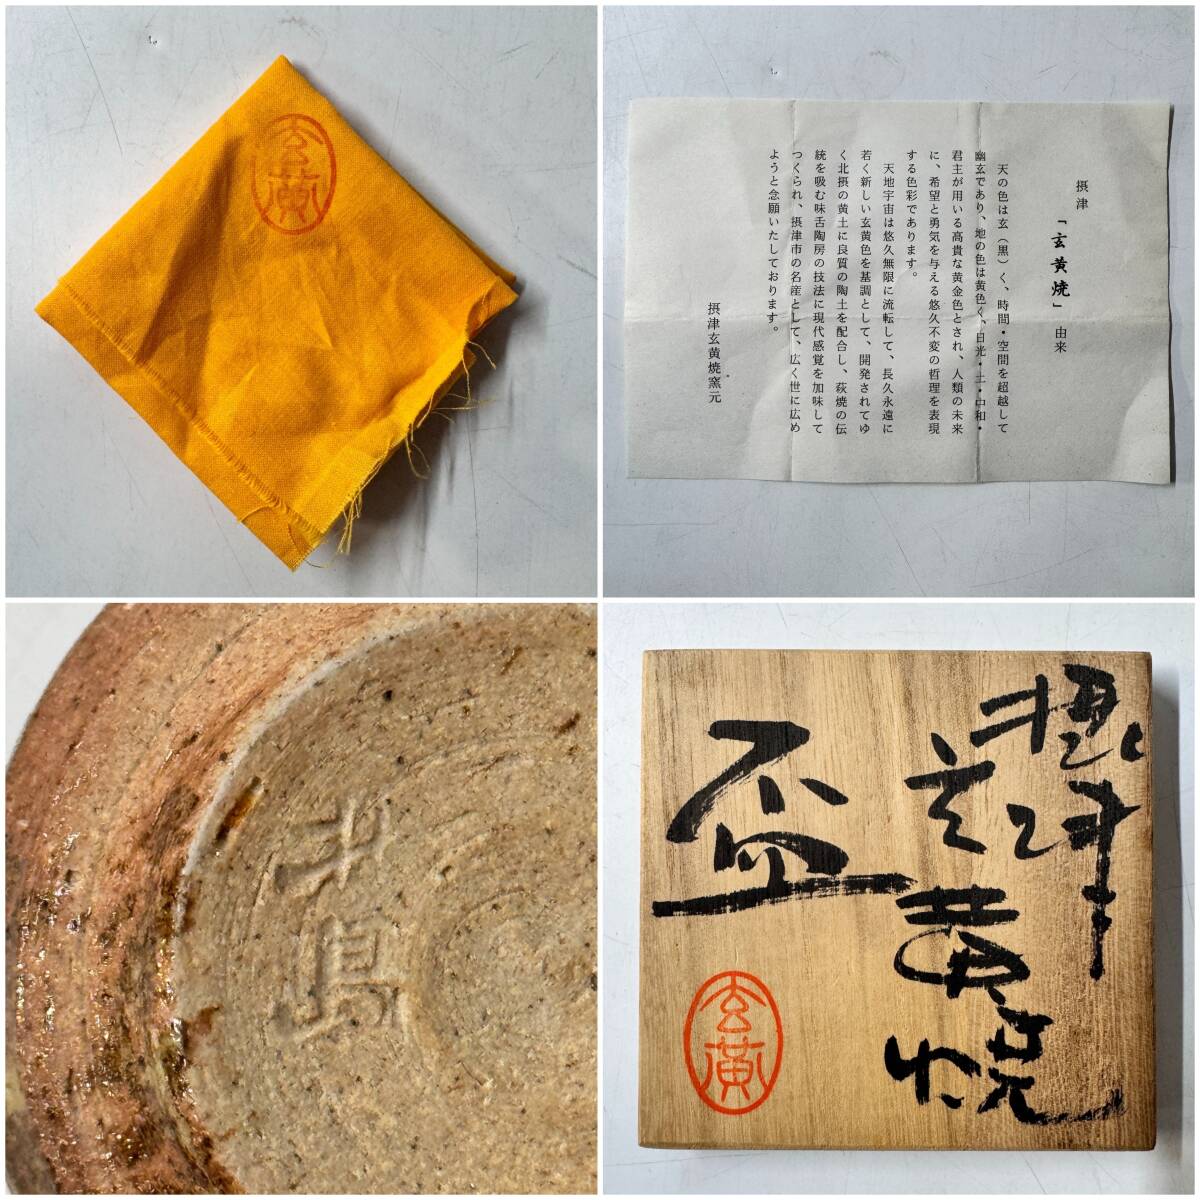 玄黄
摂津
「玄黄焼」 由来
天の色は玄（黒）く、時間・空間を超越して
幽玄であり、地の色は黄色く、日光・土・中和・
君主が用いる高貴な黄金色とされ、人類の未来
に、希望と勇気を与える悠久不変の哲理を表現
する色彩であります。
天地宇宙は悠久無限に流転して、長久永遠に
若く新しい玄黄色を基調として、開発されてゆ
く北摂の黄土に良質の陶土を配合し、萩焼の伝
統を吸む味舌陶房の技法に現代感覚を加味して
つくられ、摂津市の名産として、広く世に広め
ようと念願いたしております。
摂津玄黄焼窯元
摂津
玄黄焼
盃
玄黄